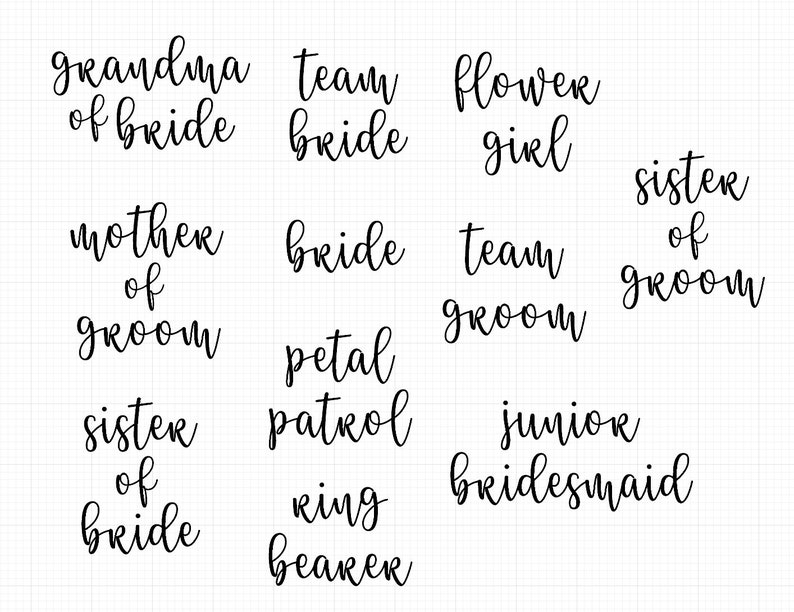 grandma
of bride
team
bride
flower
girl
sister
of
groom
mother
of
groom
bride
team
groom
petal
patrol
sister
of
bride
junior
bridesmaid
ring
bearer